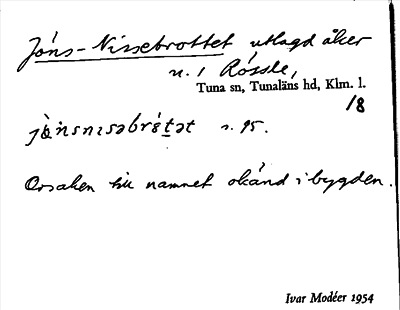 Jóns-Nissebrottet utlagd åker
n. 1 Rössle,
Tuna sn, Tunaläns hd, Klm. l.
1/8
s. 95.
Orsaken till namnet okänd i bygden.
Ivar Modéer 1954